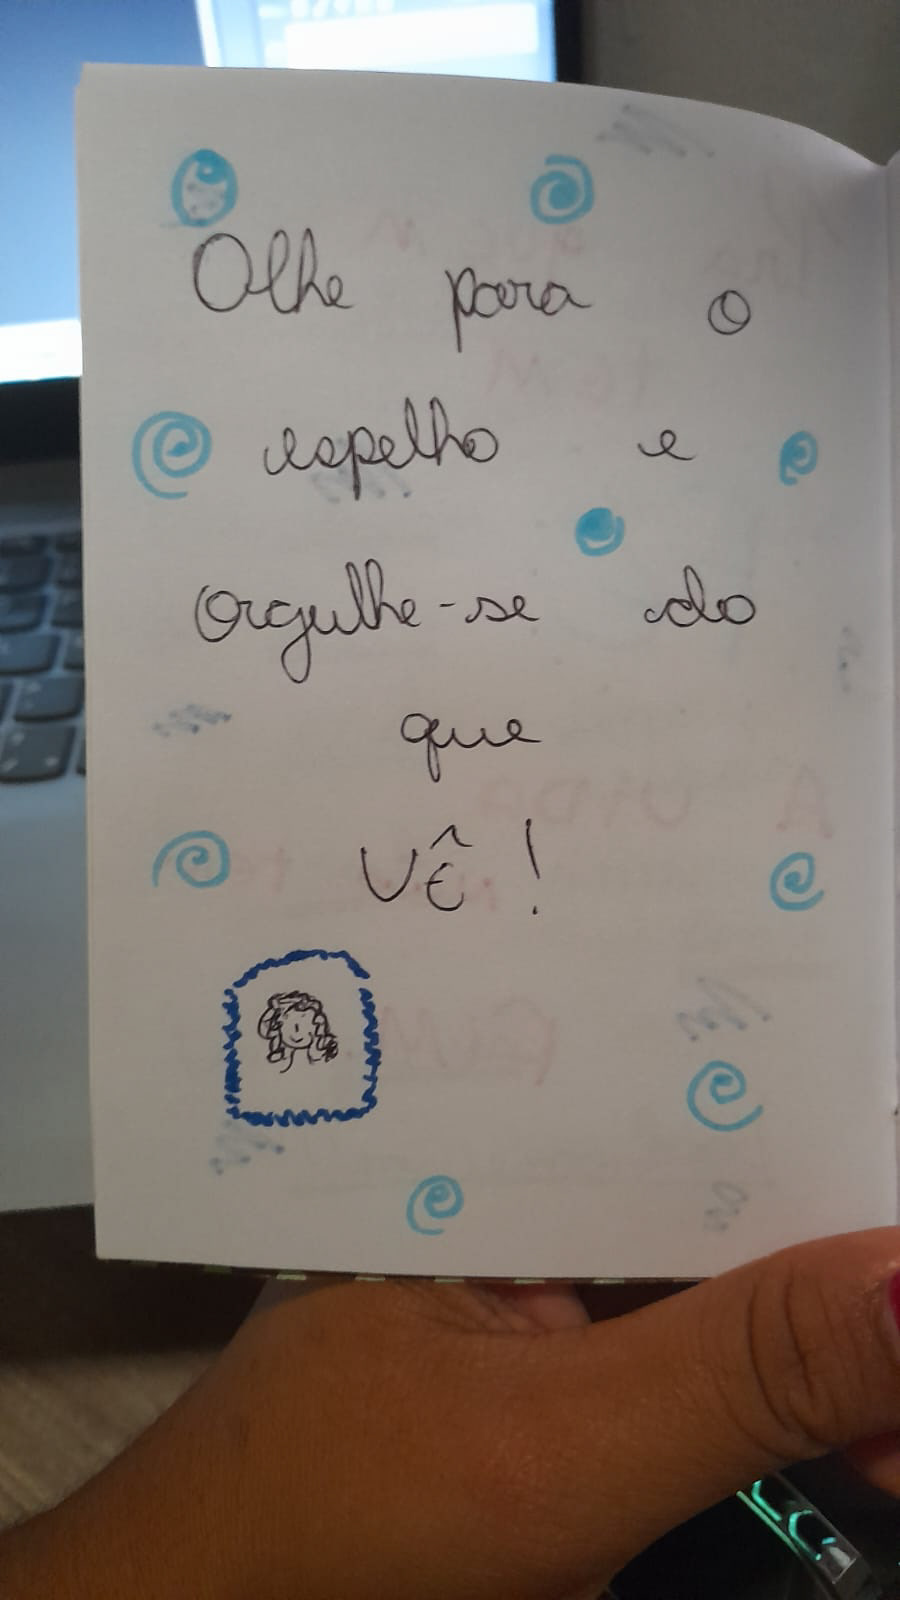 Olhe para o
espelho e
orgulhe-se do
que
VÊ!